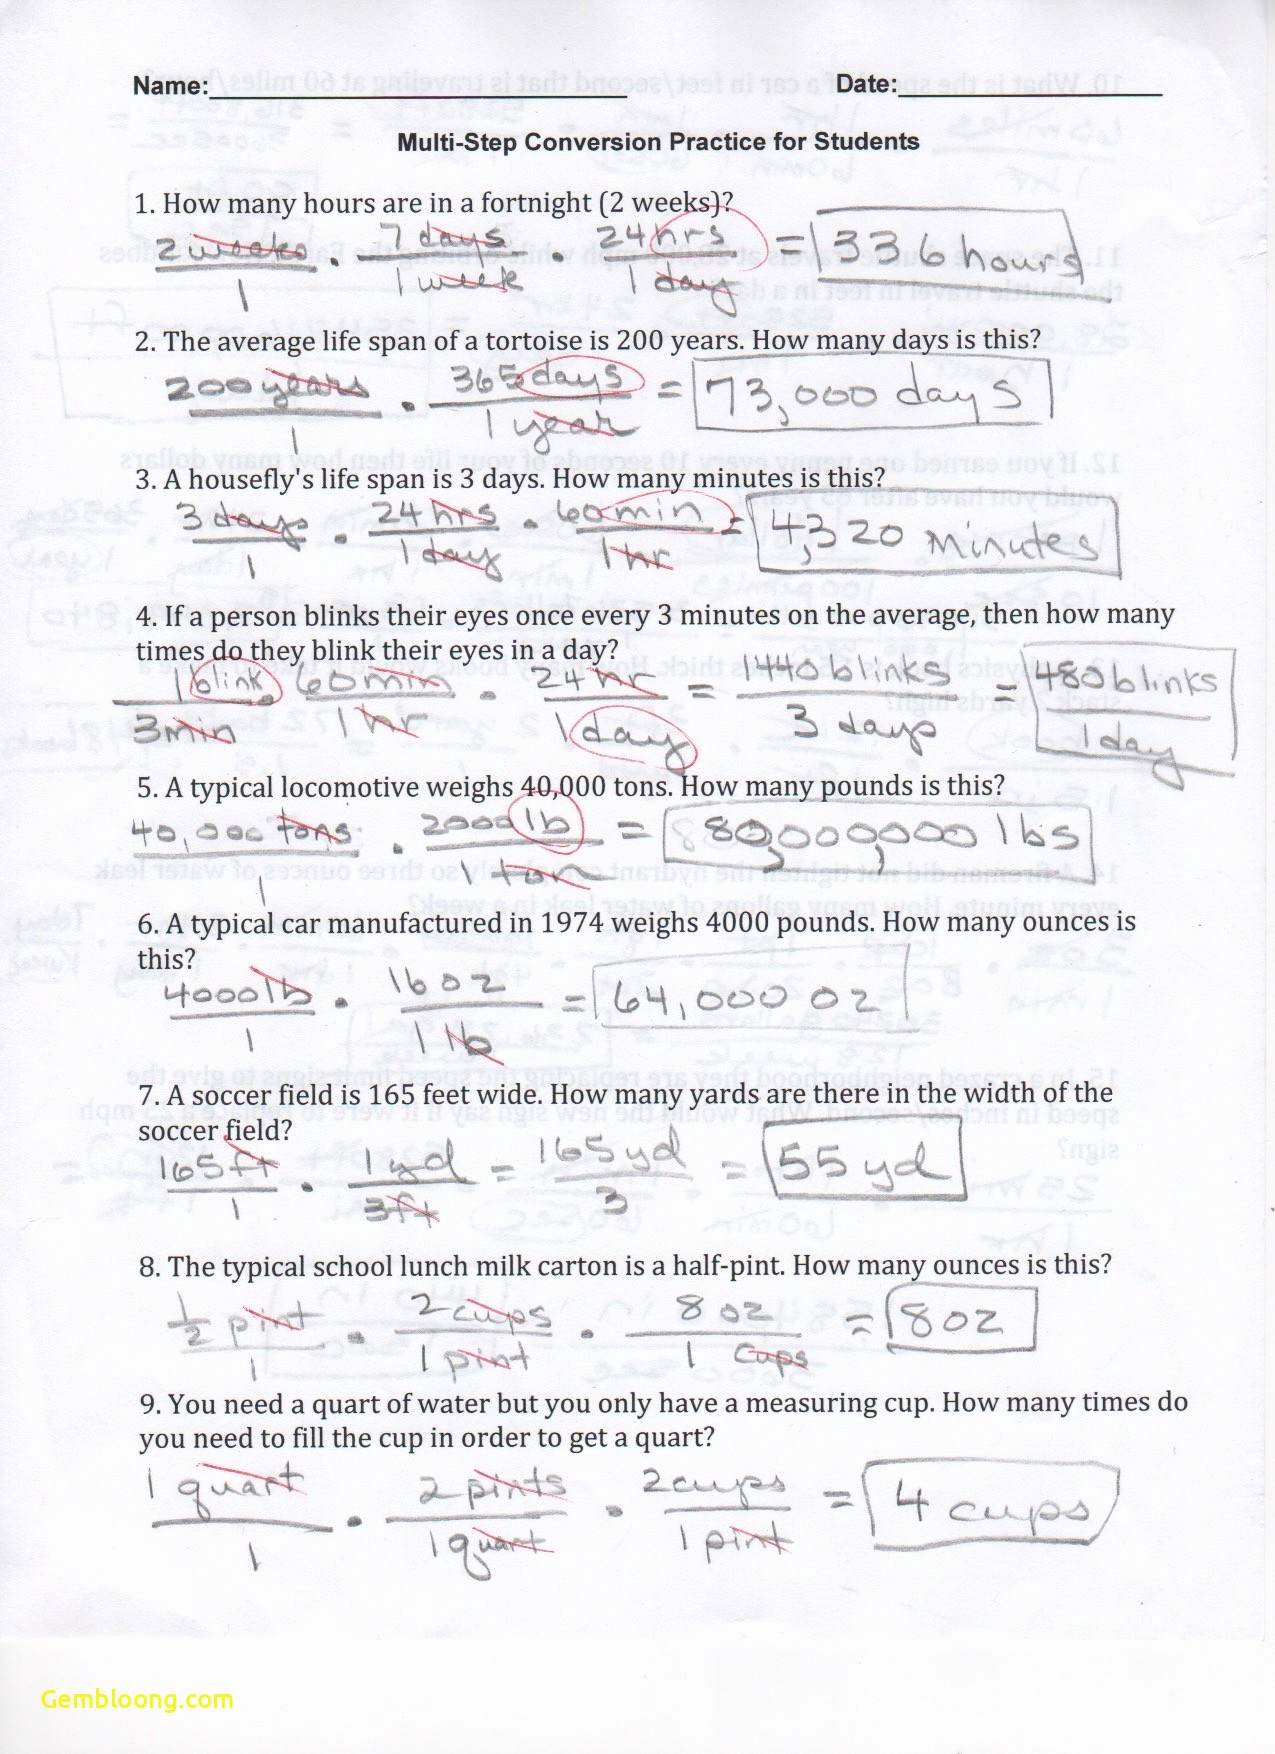 Name: Date:
Multi-Step Conversion Practice for Students
1. How many hours are in a fortnight (2 weeks)?
2 weeks · 7 days · 24 hrs = 336 hours
1 1 week 1 day
2. The average life span of a tortoise is 200 years. How many days is this?
200 years · 365 days = 73,000 days
1 1 year
3. A housefly's life span is 3 days. How many minutes is this?
3 days · 24 hrs · 60 min = 4,320 Minutes
1 1 day 1 hr
4. If a person blinks their eyes once every 3 minutes on the average, then how many
times do they blink their eyes in a day?
1 blink · 60 min · 24 hr = 1440 blinks = 480 blinks
3 min 1 hr 1 day 3 days 1 day
5. A typical locomotive weighs 40,000 tons. How many pounds is this?
40,000 tons · 2000 lb = 80,000,000 lbs
1 1 ton
6. A typical car manufactured in 1974 weighs 4000 pounds. How many ounces is
this?
4000 lb · 16 oz = 64,000 oz
1 1 lb
7. A soccer field is 165 feet wide. How many yards are there in the width of the
soccer field?
165 ft · 1 yd = 165 yd = 55 yd
1 3 ft 3
8. The typical school lunch milk carton is a half-pint. How many ounces is this?
1/2 pint · 2 cups · 8 oz = 8 oz
1 1 pint 1 cups
9. You need a quart of water but you only have a measuring cup. How many times do
you need to fill the cup in order to get a quart?
1 quart · 2 pints · 2 cups = 4 cups
1 1 quart 1 pint
Gembloong.com